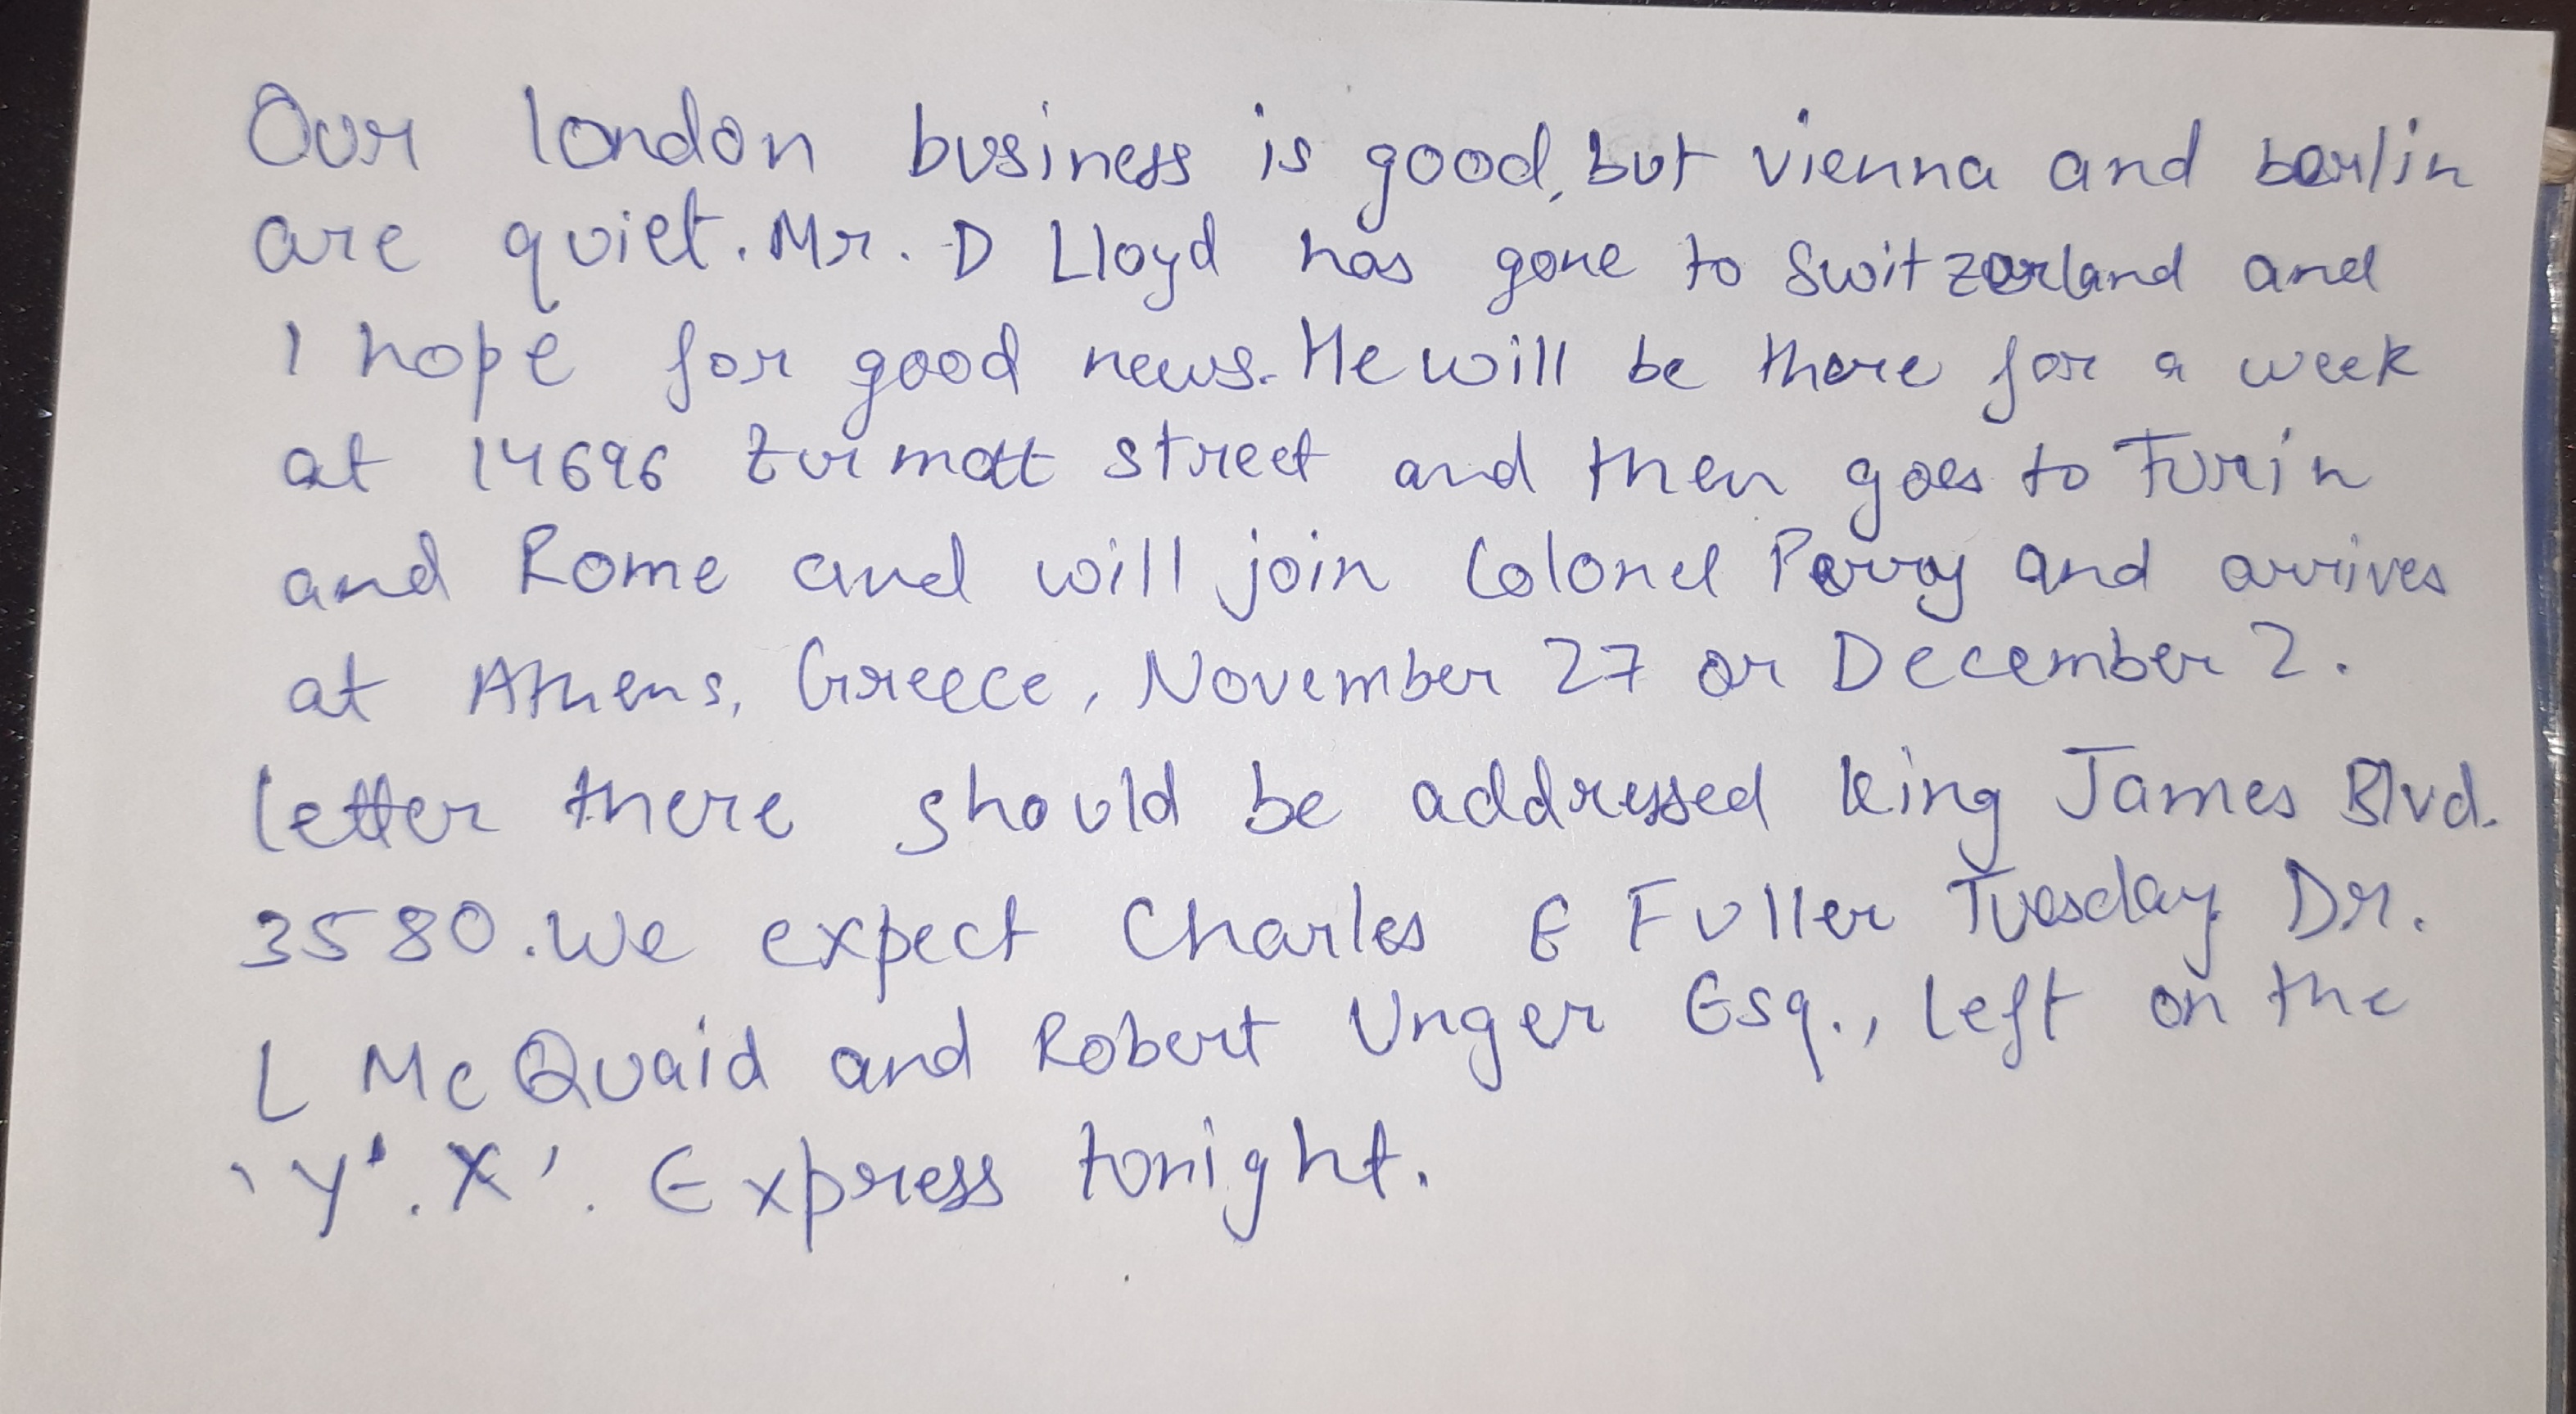 Our london business is good, but vienna and berlin
are quiet. Mr. D Lloyd has gone to Switzerland and
I hope for good news. He will be there for a week
at 14696 Zurmatt street and then goes to Turin
and Rome and will join Colonel Perry and arrives
at Athens, Greece, November 27 or December 2.
letter there should be addressed King James Blvd.
3580. We expect Charles E Fuller Tuesday. Dr.
L McQuaid and Robert Unger Esq., left on the
'Y'. X'. Express tonight.